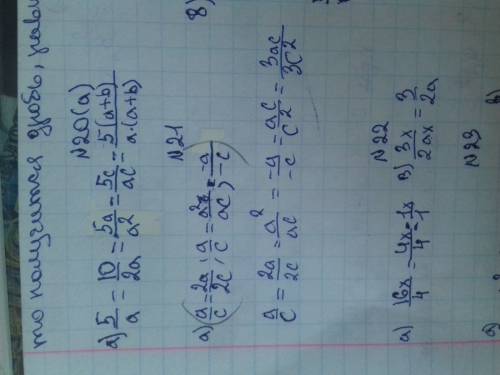 то получится дробь, равн
N20(а)
а) 5/a = 10/2a = 5a/a² = 5c/ac = 5(a+b)/a·(a+b)
N21
а) (a/c = 2a/2c; a/c = a²/ac; -a/-c)
a/c = 2a/2c = a²/ac = -a/-c = ac/c² = 3ac/3c²
8)
N22
а) 16x/4 = 4x/4 = 1x/1 в) 3x/2ax = 3/2a
N23
а) в)